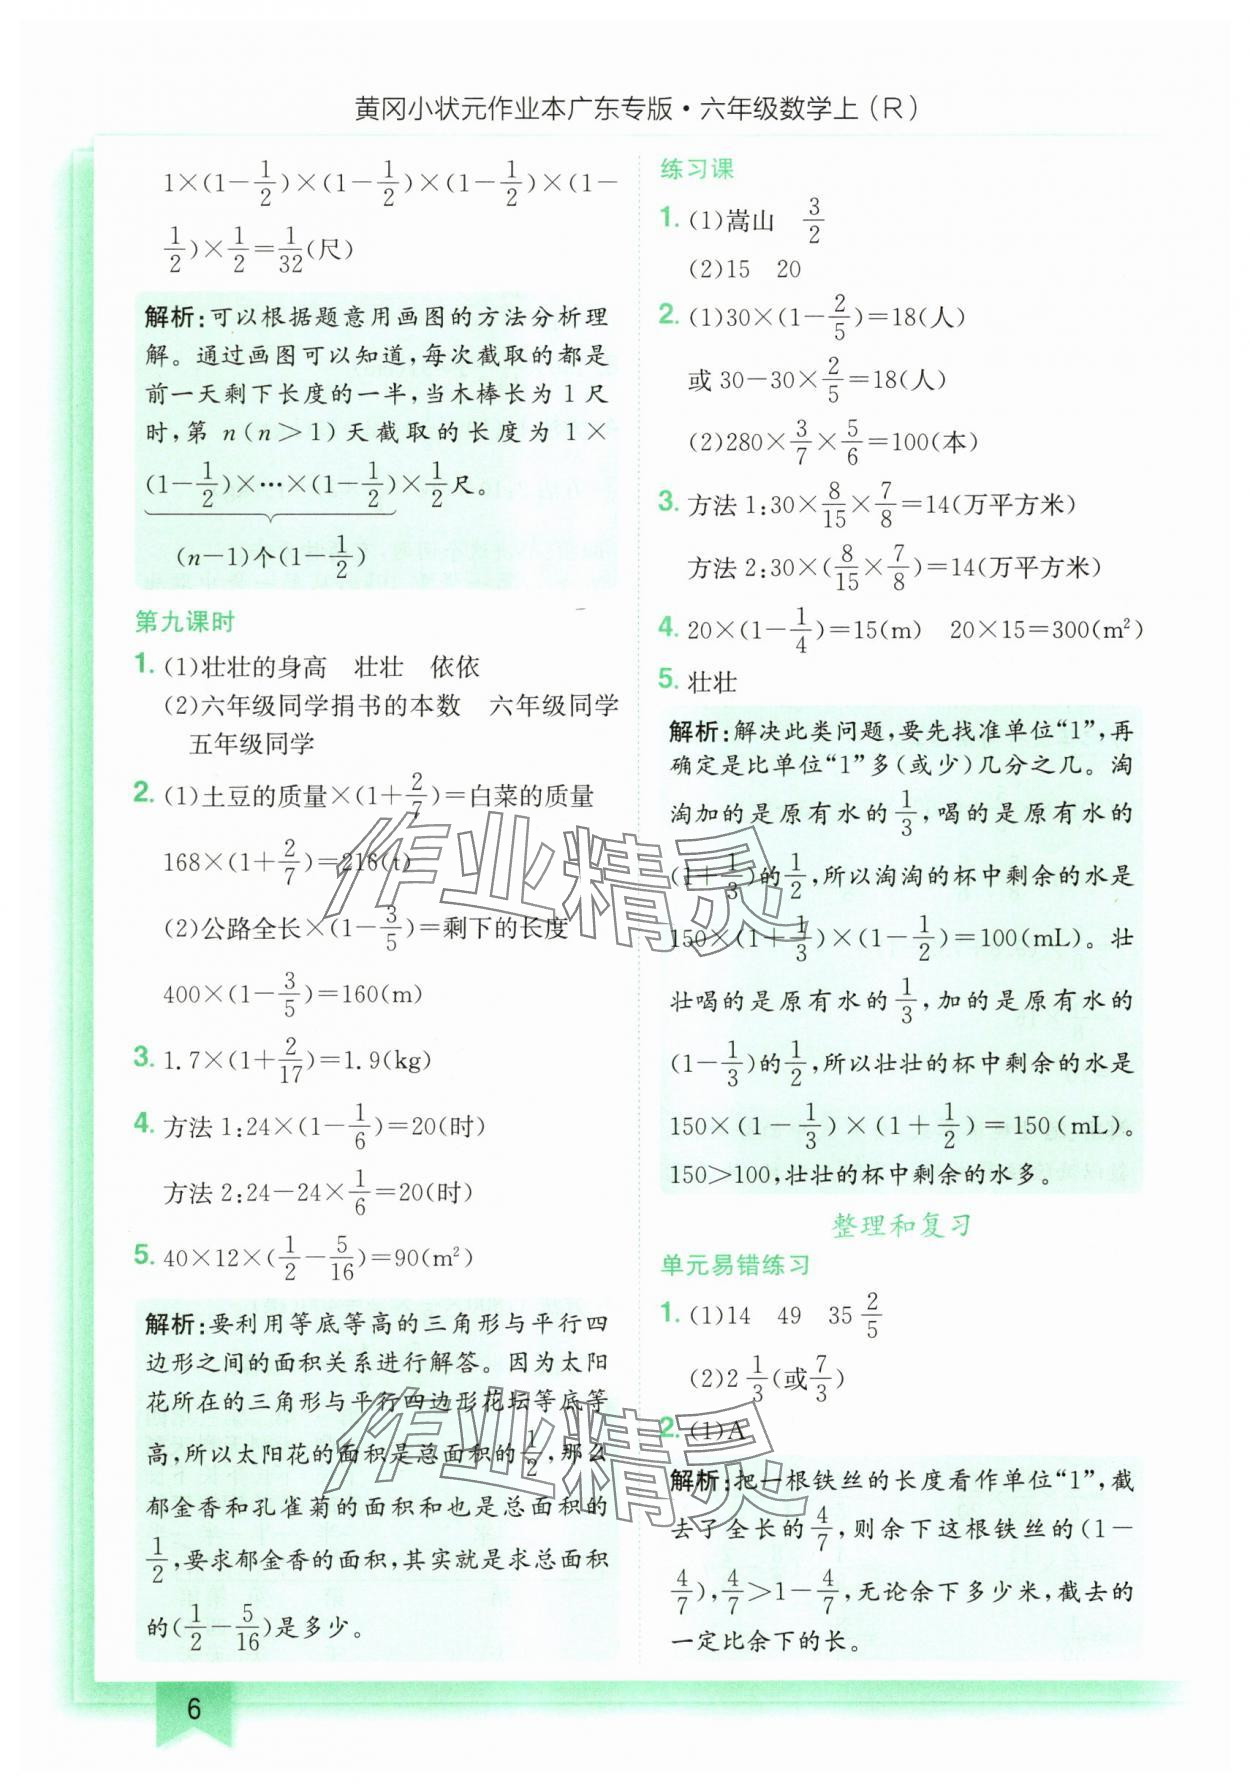 黄冈小状元作业本广东专版·六年级数学上(R)
1×(1-1/2)×(1-1/2)×(1-1/2)×(1-
1/2)×1/2=1/32(尺)
解析:可以根据题意用画图的方法分析理
解。通过画图可以知道,每次截取的都是
前一天剩下长度的一半,当木棒长为 1 尺
时,第 n(n>1)天截取的长度为 1×
(1-1/2)×…×(1-1/2)×1/2尺。
(n-1)个(1-1/2)
第九课时
1. (1)壮壮的身高 壮壮 依依
(2)六年级同学捐书的本数 六年级同学
五年级同学
2. (1)土豆的质量×(1+2/7)=白菜的质量
168×(1+2/7)=216(t)
(2)公路全长×(1-3/5)=剩下的长度
400×(1-3/5)=160(m)
3. 1.7×(1+2/17)=1.9(kg)
4. 方法 1:24×(1-1/6)=20(时)
方法 2:24-24×1/6=20(时)
5. 40×12×(1/2-5/16)=90(m²)
解析:要利用等底等高的三角形与平行四
边形之间的面积关系进行解答。因为太阳
花所在的三角形与平行四边形花坛等底等
高,所以太阳花的面积是总面积的1/2,那么
郁金香和孔雀菊的面积和也是总面积的
1/2,要求郁金香的面积,其实就是求总面积
的(1/2-5/16)是多少。
6
练习课
1. (1)嵩山 3/2
(2)15 20
2. (1)30×(1-2/5)=18(人)
或 30-30×2/5=18(人)
(2)280×3/7×5/6=100(本)
3. 方法 1:30×8/15×7/8=14(万平方米)
方法 2:30×(8/15×7/8)=14(万平方米)
4. 20×(1-1/4)=15(m) 20×15=300(m²)
5. 壮壮
解析:解决此类问题,要先找准单位“1”,再
确定是比单位“1”多(或少)几分之几。淘
淘加的是原有水的1/3,喝的是原有水的
(1+1/3)的1/2,所以淘淘的杯中剩余的水是
150×(1+1/3)×(1-1/2)=100(mL)。壮
壮喝的是原有水的1/3,加的是原有水的
(1-1/3)的1/2,所以壮壮的杯中剩余的水是
150×(1-1/3)×(1+1/2)=150(mL)。
150>100,壮壮的杯中剩余的水多。
整理和复习
单元易错练习
1. (1)14 49 35 2/5
(2)2 1/3(或7/3)
2. (1)A
解析:把一根铁丝的长度看作单位“1”,截
去了全长的4/7,则余下这根铁丝的(1-
4/7),4/7>1-4/7,无论余下多少米,截去的
一定比余下的长。
作业精灵
作业精灵